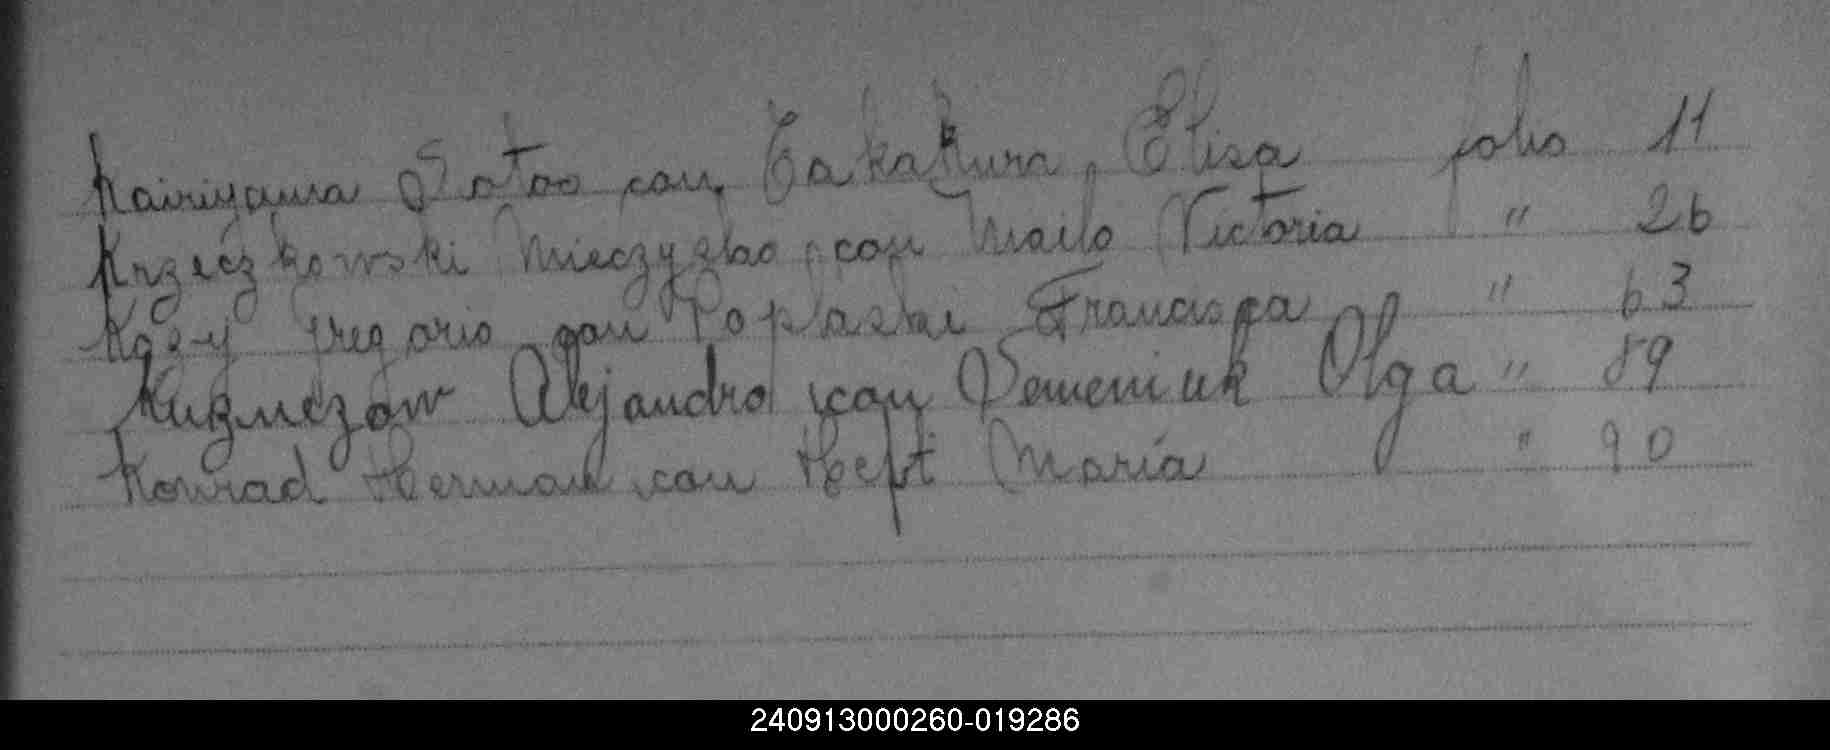 Kairiyama Satoo con Takakura, Elisa folio 11
Krzeczkowski Mieczyslao con Mailo Victoria " 26
Kozy Gregorio con Poplaski Francisca " 63
Kuzmezow Alejandro con Semeniuk Olga " 89
Konrad Herman con Heft María " 90
240913000260-019286